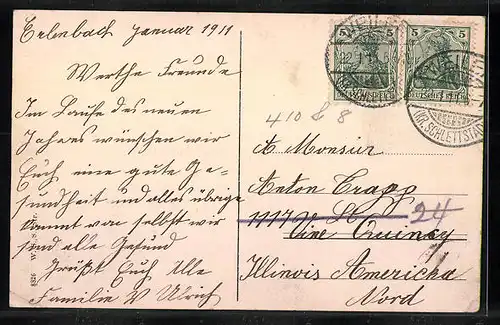 Erlenbach Januar 1911
Werthe Freunde
Im Laufe des neuen
Jahres wünschen wir
Euch eine gute Ge-
sundheit und alles übrige
kommt von selbst wir
sind alle Gesund
Grüßt Euch Alle
Familie V Ulrich
5
5
(KR. SCHLETTSTADT)
410 & 8
A Monsieur
Anton Trapp
1117 24
Vine Quincy
Illinois America
Nord